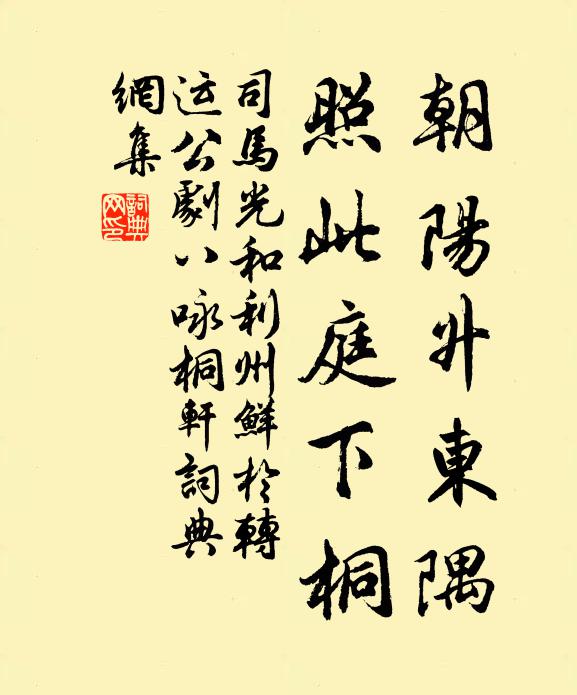 朝陽升東隅
照此庭下桐
司馬光和利州鮮於轉
运公劇八咏桐軒詞典
網集
詞典網印